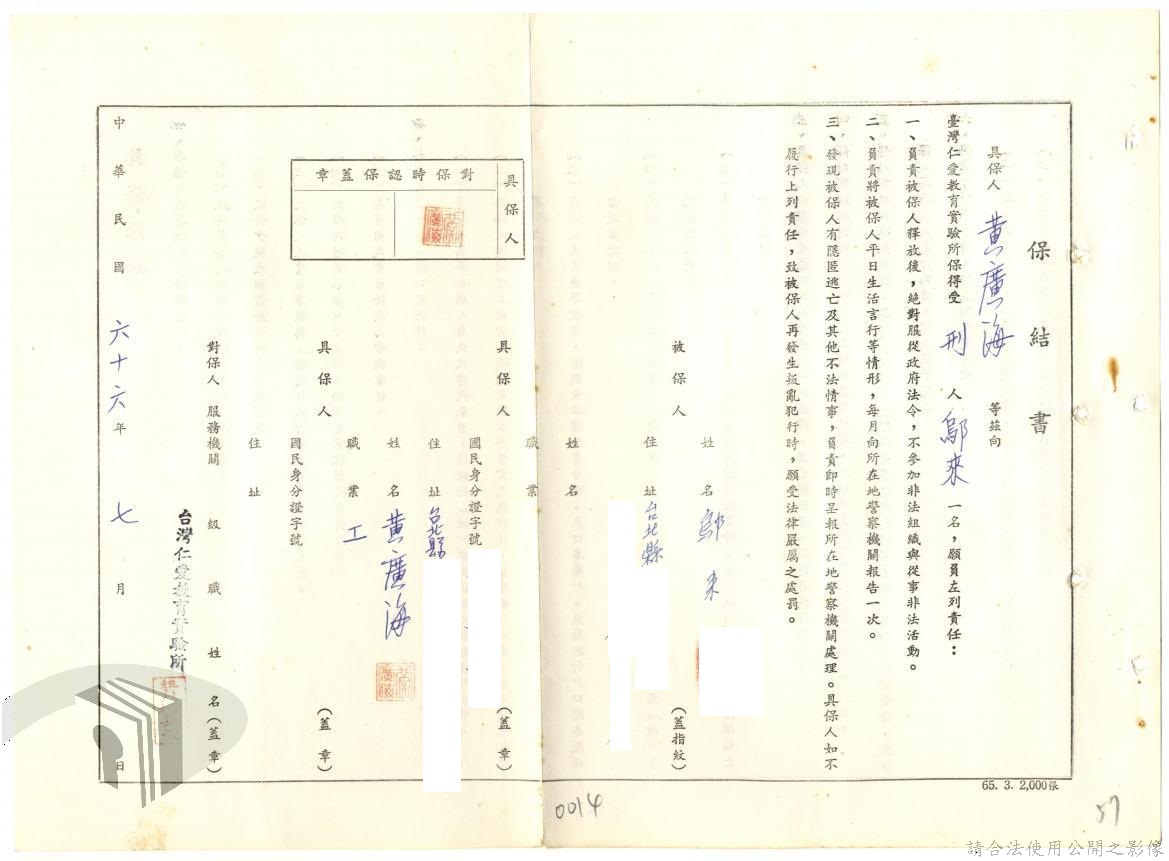 保結書
具保人 黃廣海 等茲向
臺灣仁愛教育實驗所保得受 刑 人 鄔來 一名，願負左列責任：
一、負責被保人釋放後，絕對服從政府法令，不參加非法組織與從事非法活動。
二、負責將被保人平日生活言行等情形，每月向所在地警察機關報告一次。
三、發現被保人有隱匿逃亡及其他不法情事，負責即時呈報所在地警察機關處理。具保人如不
履行上列責任，致被保人再發生叛亂犯行時，願受法律嚴厲之處罰。
姓名 鄔來
被保人 （蓋指紋）
住址 台北縣
姓名
職業
具保人 （蓋章）
國民身分證字號
住址 台北縣
姓名 黃廣海
職業 工
具保人 （蓋章）
國民身分證字號
住址
住址
對保人 服務機關 級職 姓名（蓋章）
台灣仁愛教育實驗所
具保人
對保時認保蓋章
中華民國 六十六年 七 月 日
65. 3. 2,000張
0014
57
請合法使用公開之影像